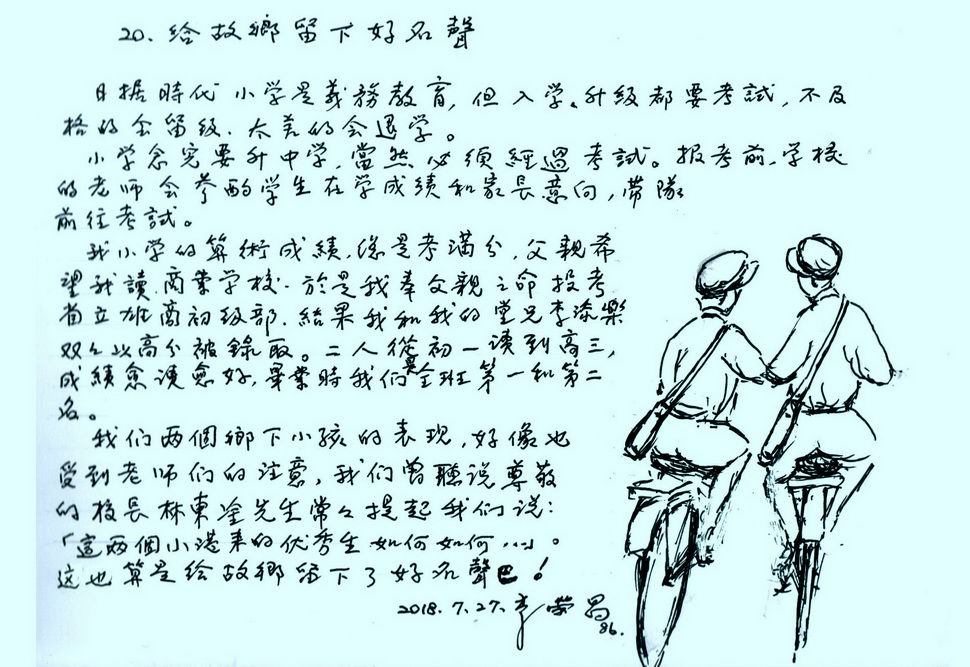 20. 给故鄉留下好名聲
日据時代小学是義務教育，但入学、升級都要考試，不及
格的会留级、太差的会退学。
小学念完要升中学，當然必须經過考試。报考前，学校
的老师会參酌学生在学成績和家長意向，带隊
前往考試。
我小学的算術成績，總是考滿分，父親希
望我讀商業学校，於是我奉父親之命投考
省立雄商初级部，結果我和我的堂兄李添樂
双々以高分被錄取。二人從初一读到高三，
成績愈读愈好，畢業時我们是全班第一和第二
名。
我们两個鄉下小孩的表現，好像也
受到老师们的注意，我们曾聽说尊敬
的校長林東淦先生常々提起我们说：
「這两個小港来的优秀生如何如何…」。
这也算是给故鄉留下了好名聲吧！
2018.7.27. 李榮昌
86.